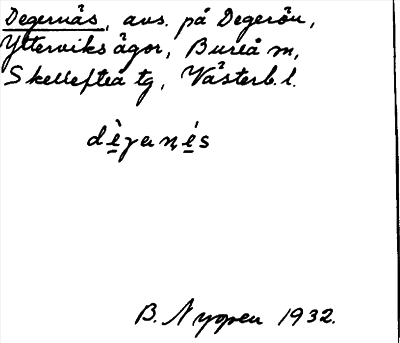 Degernäs, avs. på Degerön,
Ytterviks ägor, Bureå sn,
Skellefteå tg, Västerb. l.
dè̱gaṇé̱s
B. Nygren 1932.